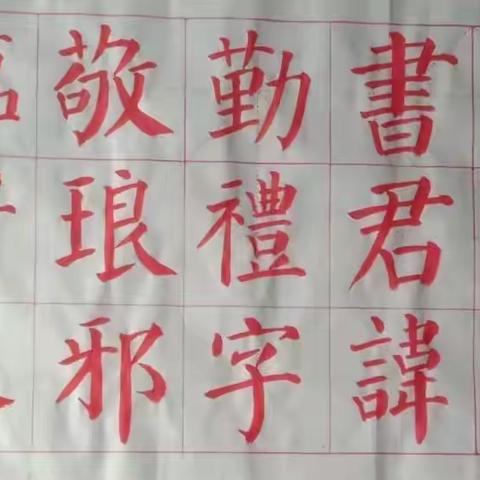 書君諱
勤禮字
敬琅邪